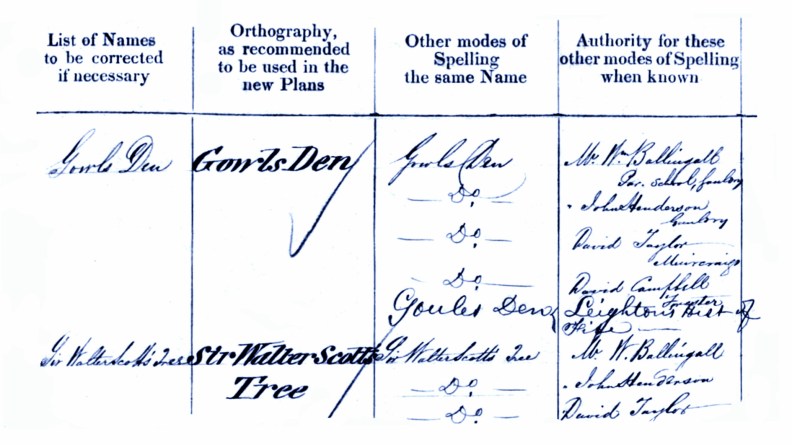 List of Names
to be corrected
if necessary
Orthography,
as recommended
to be used in the
new Plans
Other modes of
Spelling
the same Name
Authority for these
other modes of Spelling
when known
Gowls Den
Gowls Den
Gowls Den
Mr. Wm. Ballingall
Par. School,
Do.
" John Henderson
Do.
David Taylor
Muircraigs
Do.
David Campbell
Forester
Goules Den
Leighton's Hist of
Fife
Sir Walter Scott's Tree
Sir Walter Scott's
Tree
Sir Walter Scott's Tree
Mr. W. Ballingall
Do.
" John Henderson
Do.
David Taylor